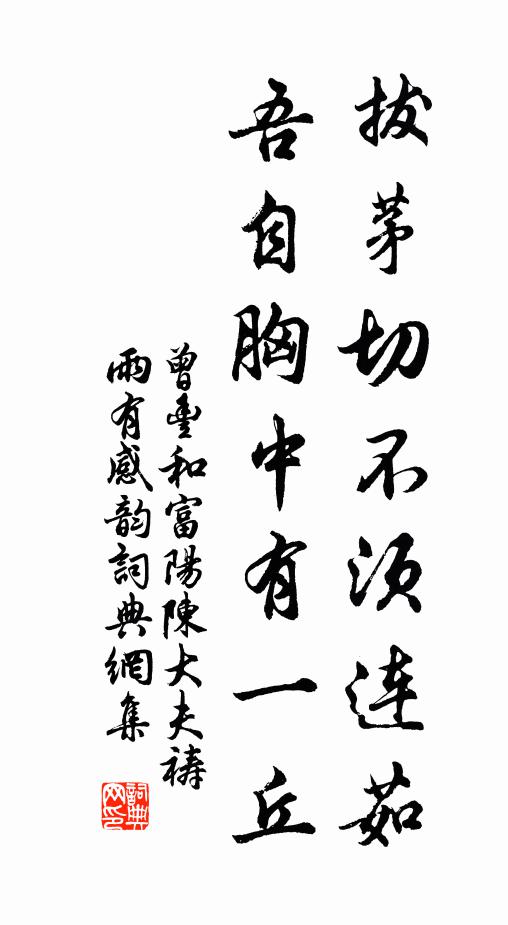 拔茅切不须连茹
吾自胸中有一丘
曾豐和富陽陳大夫禱
雨有感韵詞典網集
詞典网印